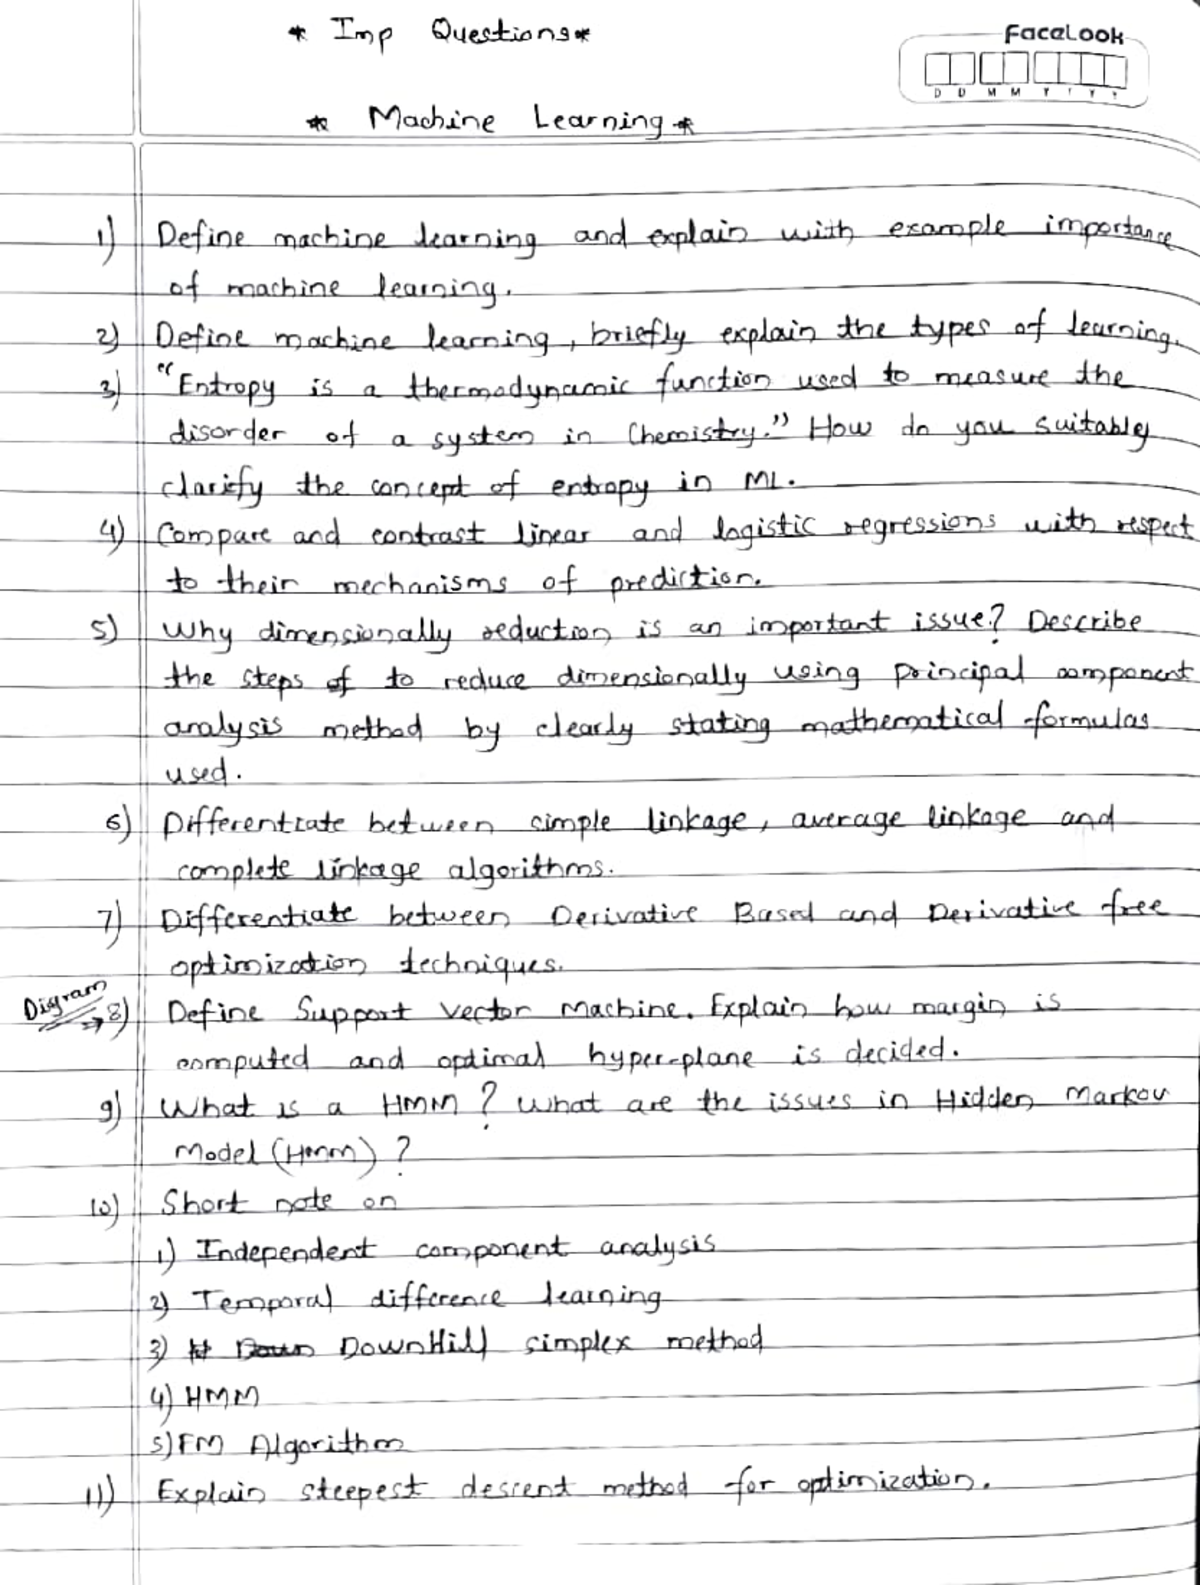 * Imp Questions *
FaceLook
D D M M Y Y Y Y
* Machine Learning *
1) Define machine learning and explain with example importance
of machine learning.
2) Define machine learning, briefly explain the types of learning.
3) "Entropy is a thermodynamic function used to measure the
disorder of a system in Chemistry." How do you suitably
clarify the concept of entropy in ML.
4) Compare and contrast linear and logistic regressions with respect
to their mechanisms of prediction.
5) Why dimensionally reduction is an important issue? Describe
the steps of to reduce dimensionally using principal component
analysis method by clearly stating mathematical formulas
used.
6) Differentiate between simple linkage, average linkage and
complete linkage algorithms.
7) Differentiate between Derivative Based and Derivative free
optimization techniques.
Digram → 8) Define Support Vector Machine. Explain how margin is
computed and optimal hyper-plane is decided.
9) What is a HMM? What are the issues in Hidden Markov
Model (HMM)?
10) Short note on
1) Independent component analysis
2) Temporal difference learning
3) DownHill simplex method
4) HMM
5) EM Algorithm
11) Explain steepest descent method for optimization.